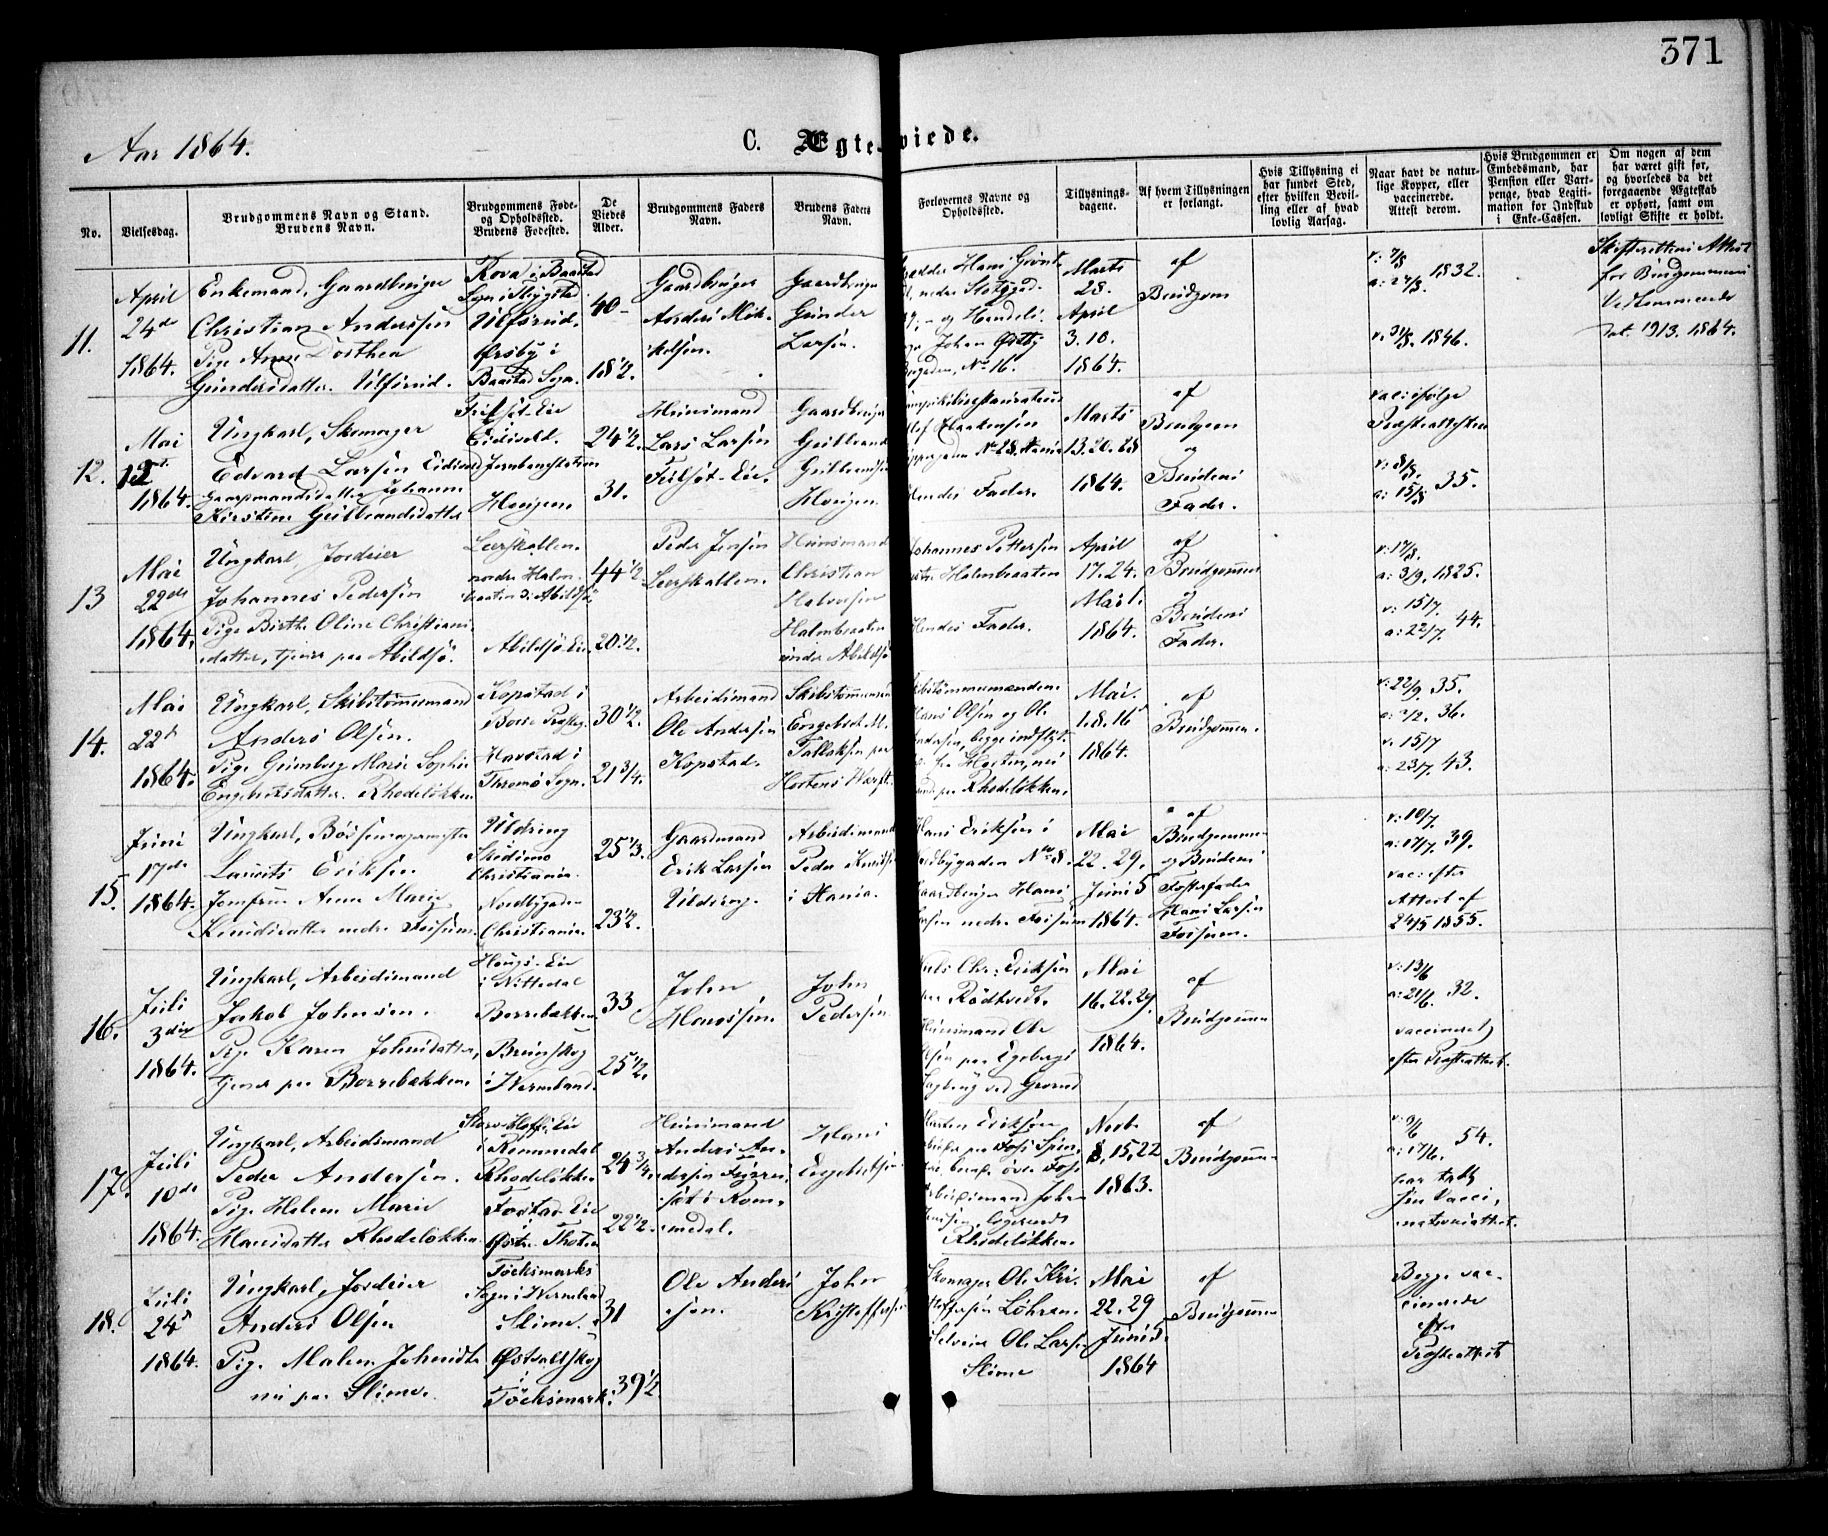 371
Aar 1864.
C. Ægte-viede.
No.
Vielsesdag.
Brudgommens Navn og Stand.
Brudens Navn.
Brudgommens Føde-
og Opholdssted.
Brudens Fødested.
De
Viedes
Alder.
Brudgommens Faders
Navn.
Brudens Faders
Navn.
Forlovernes Navne og
Opholdssted.
Tillysnings-
dagene.
Af hvem Tillysningen
er forlangt.
Hvis Tillysning ei
har fundet Sted,
efter hvilken Bevil-
ling eller af hvad
lovlig Aarsag.
Naar havt de natur-
lige Kopper, eller
vaccinerede.
Attest derom.
Hvis Brudgommen er
Embedsmand, har
Pension eller Vart-
penge, hvad Legiti-
mation for Indskud
i Enke-Cassen.
Om nogen af dem
har været gift før,
og hvorledes da det
foregaaende Ægteskab
er ophørt, samt om
lovligt Skifte er holdt.
11.
April
24de
1864.
Enkemand, Gaardbruger
Christian Anderssen
Pige Anne Dorthea
Gundersdatter Ulfsrud.
Rova i Baastad
Ulfsrud.
Ørsby i
Baastad Sogn.
40
18 1/2.
Gaardbruger
Anders Mik-
kelsen.
Gaardbruger
Gunder
Larsen.
Marts
28.
April
3. 10.
1864.
af
Brudgom
v: 7/8
a: 27/8. 1832.
v: 31/8. 1846.
Skifterettens Attest
for Brudgommens
Vedkommende
dat. 19/3. 1864.
12.
Mai
1864.
Ungkarl, Skomager
Edvard Larsen
Gaardmandsdatter Johanne
Kirstine Gulbrandsdatter
Eidsvold.
Jernbanestation
Haugen.
24 1/2.
31.
Huusmand
Lars Larsen
Gaardbruger
Gulbrand
Gulbrandsen
Haugen.
Hendes Fader.
Marts
13. 20. 28
1864.
af
Brudgom
og
Brudens
Fader.
vac: ifølge
Præsteattesten
v: 8/8.
a: 15/8 35.
13
Mai
22de
1864.
Ungkarl, Jordeier
Johannes Pedersen
Pige Birthe Oline Christians
datter, tjener paa Abildsø.
Leerskallen.
Abildsø Eie
44 1/2
20 1/2.
Peder Jensen
Leerskallen.
Huusmand
Christian
Halvorsen
Halmbraaten
under Abildsø
Johannes Pettersen
Halmbraaten
Hendes Fader.
April
17. 24.
Mai 1.
1864.
af
Brudgommen
og
Brudens
Fader.
v: 17/8.
a: 3/9. 1825.
v: 15/7
a: 22/7. 44.
14.
Mai
22d
1864.
Ungkarl, Skibstømmermand
Anders Olsen.
Pige Gunborg Marie Sophie
Engebretsdatter. Rhodeløkken
Kopstad i
Borre Præstegj.
Havstad i
Tromø Sogn.
30 1/2.
21 3/4.
Arbeidsmand
Ole Andersen
Kopstad.
Skibstømmermand
Engebret M.
Tallaksen paa
Hortens Værft
Skibstømmermændene
Hans Olsen og Ole
Andersen, begge indflyt-
fra Horten, nu
paa Rhodeløkken.
Mai.
1. 8. 16
1864.
af
Brudgommen.
v: 22/9. 35.
a: 2/2. 36.
v. 15/7
a: 23/7. 43.
15.
Juni
17de
1864.
Ungkarl, Bøssemagermester
Laurits Eriksen
Jomfru Anne Marie
Knudsdatter nedre Fossum.
Uldring
Skedsmo
Christiania.
Nordbygaden
Christiania
25 1/3.
23 1/2.
Gaardmand
Erik Larsen
Uldring.
Arbeidsmand
Peder Knudsen
Hans Eriksen i
Nordbygaden No 8.
Gaardbruger Hans
Larsen nedre Fossum
Mai
22. 29.
Juni 5
1864.
af
Brudgommen
og Brudens
Fosterfader
Hans Larsen
Fossum.
v: 10/7.
a: 17/7. 39.
vac: efter
Attest af
24/5 1855.
16.
Juli
3die
1864.
Ungkarl, Arbeidsmand
Jakob Johnsen.
Pige Karen Johnsdatter,
tjener paa Borrebækken.
Haugs-Eie
i Nittedal
Borrebækken
Brunskog
i Wermland.
33
25 1/2.
John
Hanssen.
John
Pedersen
Niels Chr: Eriksen
paa Rødtvedt.
Huusmand Ole
Olsen paa Egebergs
Sagbrug ved Grorud
Mai
16. 22. 29.
1864.
af
Brudgommen
v: 13/6
a: 21/6. 32.
vaccineret
efter Præsteattest.
17.
Juli
10de
1864.
Ungkarl, Arbeidsmand
Peder Andersen.
Pige Helene Marie
Hansdatter Rhodeløkken
i Rommedal
Rhodeløkken
Østre Thoten
24 3/4.
22 1/2.
Huusmand
Anders An-
dersen
i Rom-
medal.
Hans
Engebretsen
Morten Eriksen
Arbeidsmand John
Rhodeløkken.
Novb.
8. 15. 22
1863.
af
Brudgommen
v: 9/6
a: 17/6. 54.
har tabt
sin Vacci,
nationsattest.
18.
Juli
24d
1864.
Ungkarl, Jordeier
Anders Olsen
Pige Malen Johnsdtr
nu paa Slime.
Töcksmarks
Sogn i Wermland
Slime.
Östvallskog
i
Töcksmark.
31
39 1/2
Ole Anders
sen.
John
Kristoffersen
Skomager Ole Kri-
stoffersen Løhren.
Selveier Ole Larsen
Slime
Mai
22. 29
Juni 5.
1864
af
Brudgommen
Begge vac-
cinerede
efter
Præsteattest